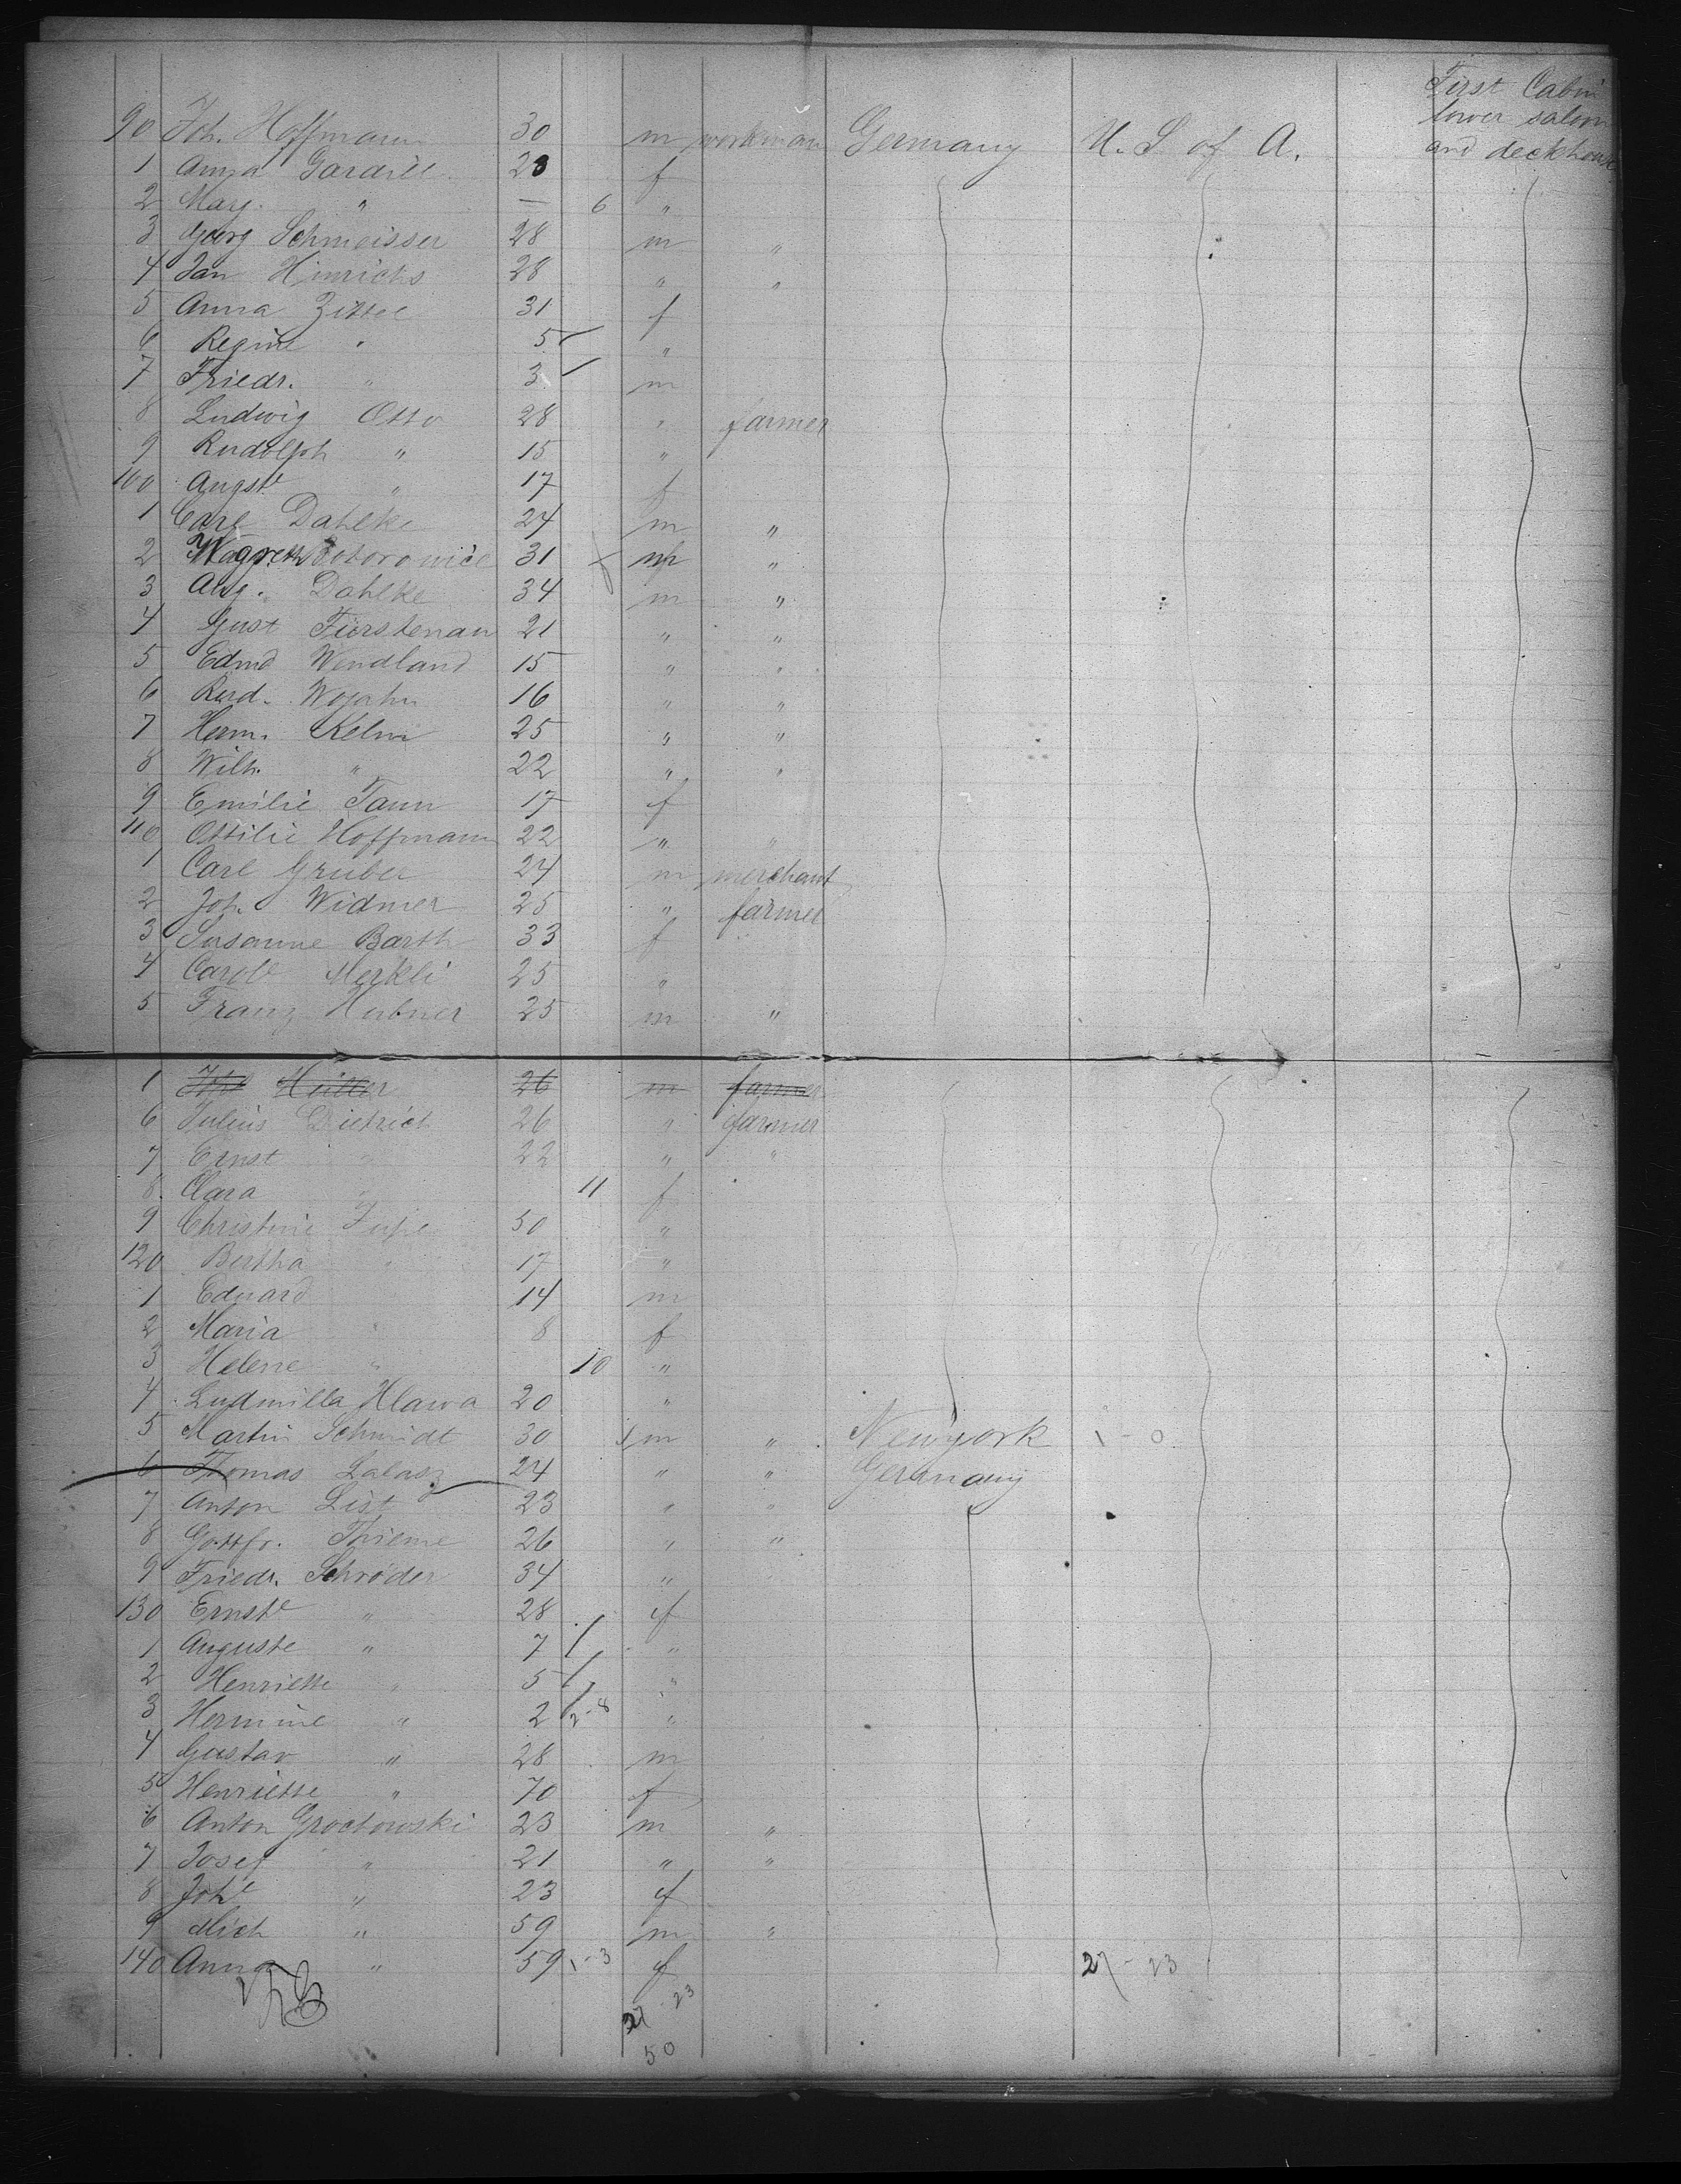 First Cabin
lower saloon
and deckhouse
90 Joh. Hoffmann 30 m workman Germany U. S of A.
1 Anna 28 f
2 Marg. " — 6 "
3 Georg Schmeisser 28 m "
4 Jan Hinrichs 28 " "
5 Anna Zittel 31 f
6 Regine " 5 "
7 Friedr. " 3 m
8 Ludwig Otto 28 " farmer
9 Rudolph " 15 "
100 Augste " 17 f
1 Carl Dahlke 24 m "
2 31 "
3 Aug. Dahlke 34 m "
4 Gust Fürstenau 21 " "
5 Edmd Wendland 15 " "
6 Rud. Wojahn 16 " "
7 Herm. Kelm 25 " "
8 Wilh. " 22 " "
9 Emilie Tann 17 f
110 Ottilie Hoffmann 22 " "
1 Carl Gruber 24 m merchant
2 Joh. Widmer 25 " farmer
3 Susanne Barth 33 f
4 Carole Merkli 25 "
5 Franz Hubner 25 m "
1 26 m farmer
6 Julius Dietrich 26 " farmer
7 Ernst " 22 " "
8 Clara " 11 f
9 Christine 50 "
120 Bertha " 17 "
1 Eduard " 14 m
2 Maria " 8 f
3 Helene " 10 "
4 Ludmilla Hlawa 20 "
5 Martin Schmidt 30 m " Newyork 1 - 0
6 Thomas Lalasz 24 " " Germany
7 Anton List 23 " "
8 Gottfr. Thieme 26 " "
9 Friedr. Schröder 34 "
130 Ernste " 28 f
1 Auguste " 7 "
2 Henriette " 5 "
3 Hermine " 2 2-8 "
4 Gustav " 28 m
5 Henriette " 70 f
6 Anton Groctowski 23 m "
7 Josef " 21 " "
8 Johe " 23 f
9 Mich " 59 m "
140 Anna " 59 1-3 f 27-23
27-23
50